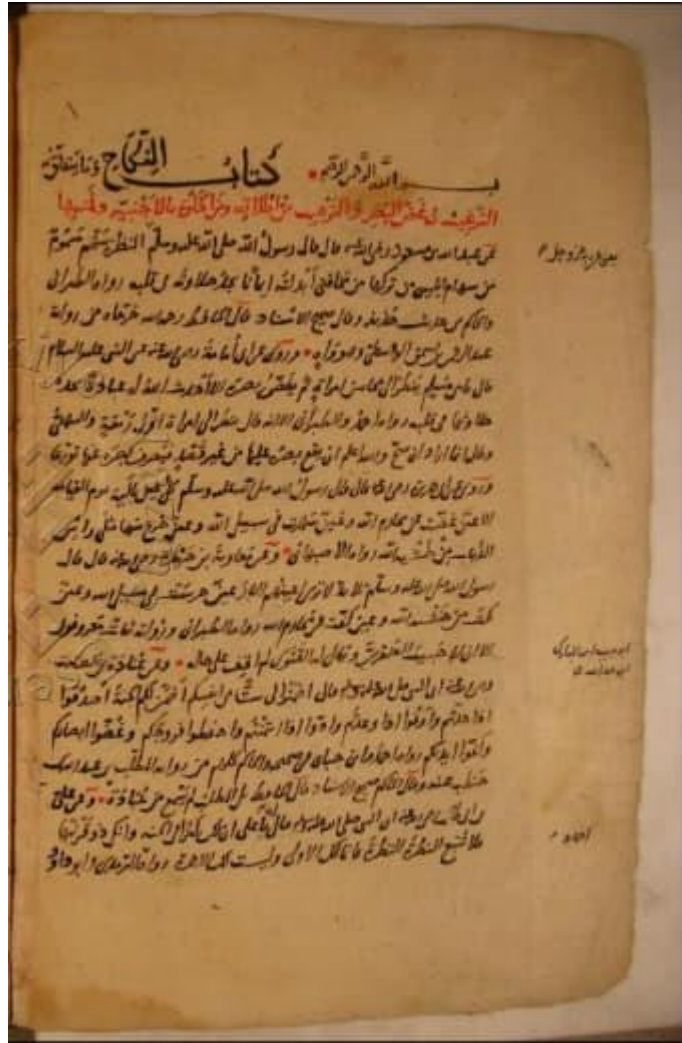 بسم الله الرحمن الرحيم كتاب النكاح وما يتعلق به
الترغيب في غض البصر والترهيب من اطلاقه ومن الخلوة بالاجنبية ولمسها
عن عبد الله بن مسعود رضي الله عنه قال قال رسول الله صلى الله عليه وسلم النظرة سهم مسموم
من سهام ابليس من تركها من مخافتي أبدلته ايمانا يجد حلاوته في قلبه رواه الطبراني
والحاكم من حديث حذيفة وقال صحيح الاسناد قال الحافظ رحمه الله خرجاه من رواية
عبد الرحمن بن اسحق الواسطي وهو واه وروي عن أبي أمامة رضي الله عنه عن النبي عليه السلام
قال ما من مسلم ينظر الى محاسن امرأة ثم يغض بصره الا أحدث الله له عبادة يجد
حلاوتها في قلبه رواه احمد والطبراني الا انه قال ينظر الى امرأة اول رمقة والبيهقي
وقال انما اراد ان صح والله اعلم ان يقع بصره عليها من غير قصد فيصرف بصره عنها تورعا
وروي عن ابي هريرة رضي الله عنه قال قال رسول الله صلى الله عليه وسلم كل عين باكية يوم القيامة
الا عين غضت عن محارم الله وعين سهرت في سبيل الله وعين خرج منها مثل رأس
الذباب من خشية الله رواه الاصبهاني وعن معاوية بن حيدة رضي الله عنه قال قال
رسول الله صلى الله عليه وسلم ثلاثة لا ترى اعينهم النار عين حرست في سبيل الله وعين
بكت من خشية الله وعين كفت عن محارم الله رواه الطبراني ورواته ثقات معروفون
الا ان ابا حبيب العنقري ويقال له القنوي لم اقف على حاله وعن عبادة بن الصامت
رضي الله عنه ان النبي صلى الله عليه وسلم قال اضمنوا لي ستا من انفسكم أضمن لكم الجنة اصدقوا
اذا حدثتم وأوفوا اذا وعدتم وادوا اذا ائتمنتم واحفظوا فروجكم وغضوا ابصاركم
وكفوا ايديكم رواه احمد وابن حبان في صحيحه والحاكم كلهم من رواية المطلب بن عبد الله بن
حنطب عنه وقال الحاكم صحيح الاسناد قال الحافظ بل المطلب لم يسمع من عبادة وعن علي
بن ابي طالب رضي الله عنه ان النبي صلى الله عليه وسلم قال يا علي ان لك كنزا في الجنة وانك ذو قرنيها
فلا تتبع النظرة النظرة فانما لك الاولى وليست لك الاخرة رواه الترمذي وابو داود
يعني عن ربه عز وجل
احمد